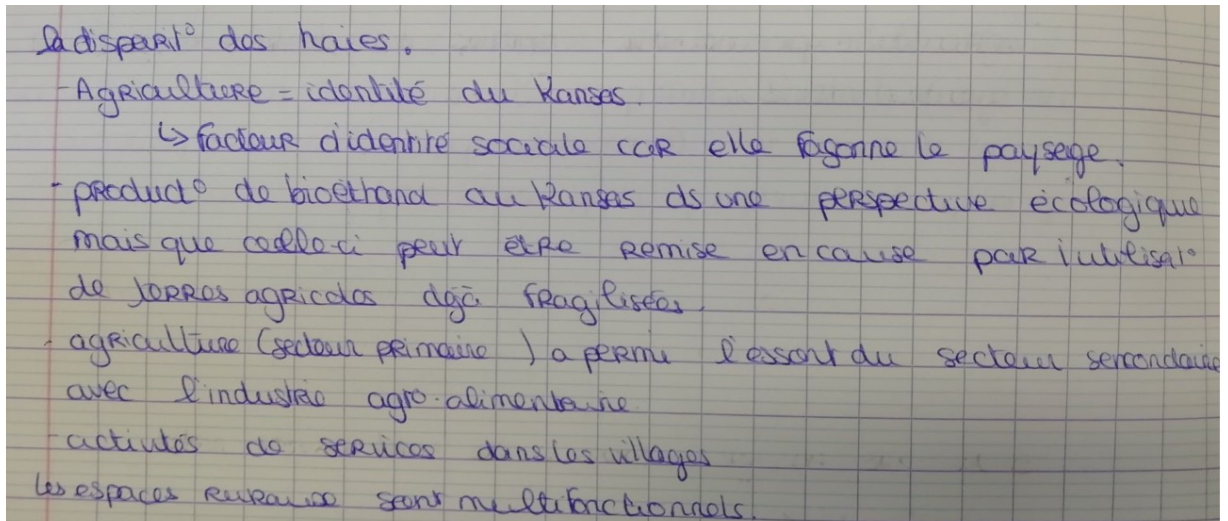 la dispari° des haies.
- Agriculture = identité du Kansas.
↳ facteur d'identité sociale car elle façonne le paysage.
- product° de bioéthanol au Kansas ds une perspective écologique
mais que celle-ci peut être remise en cause par l'utilisat°
de terres agricoles déjà fragilisées.
- agriculture (secteur primaire) a permi l'essort du secteur secondaire
avec l'industrie agro-alimentaire.
- activités de services dans les villages
les espaces ruraux sont multifonctionnels.